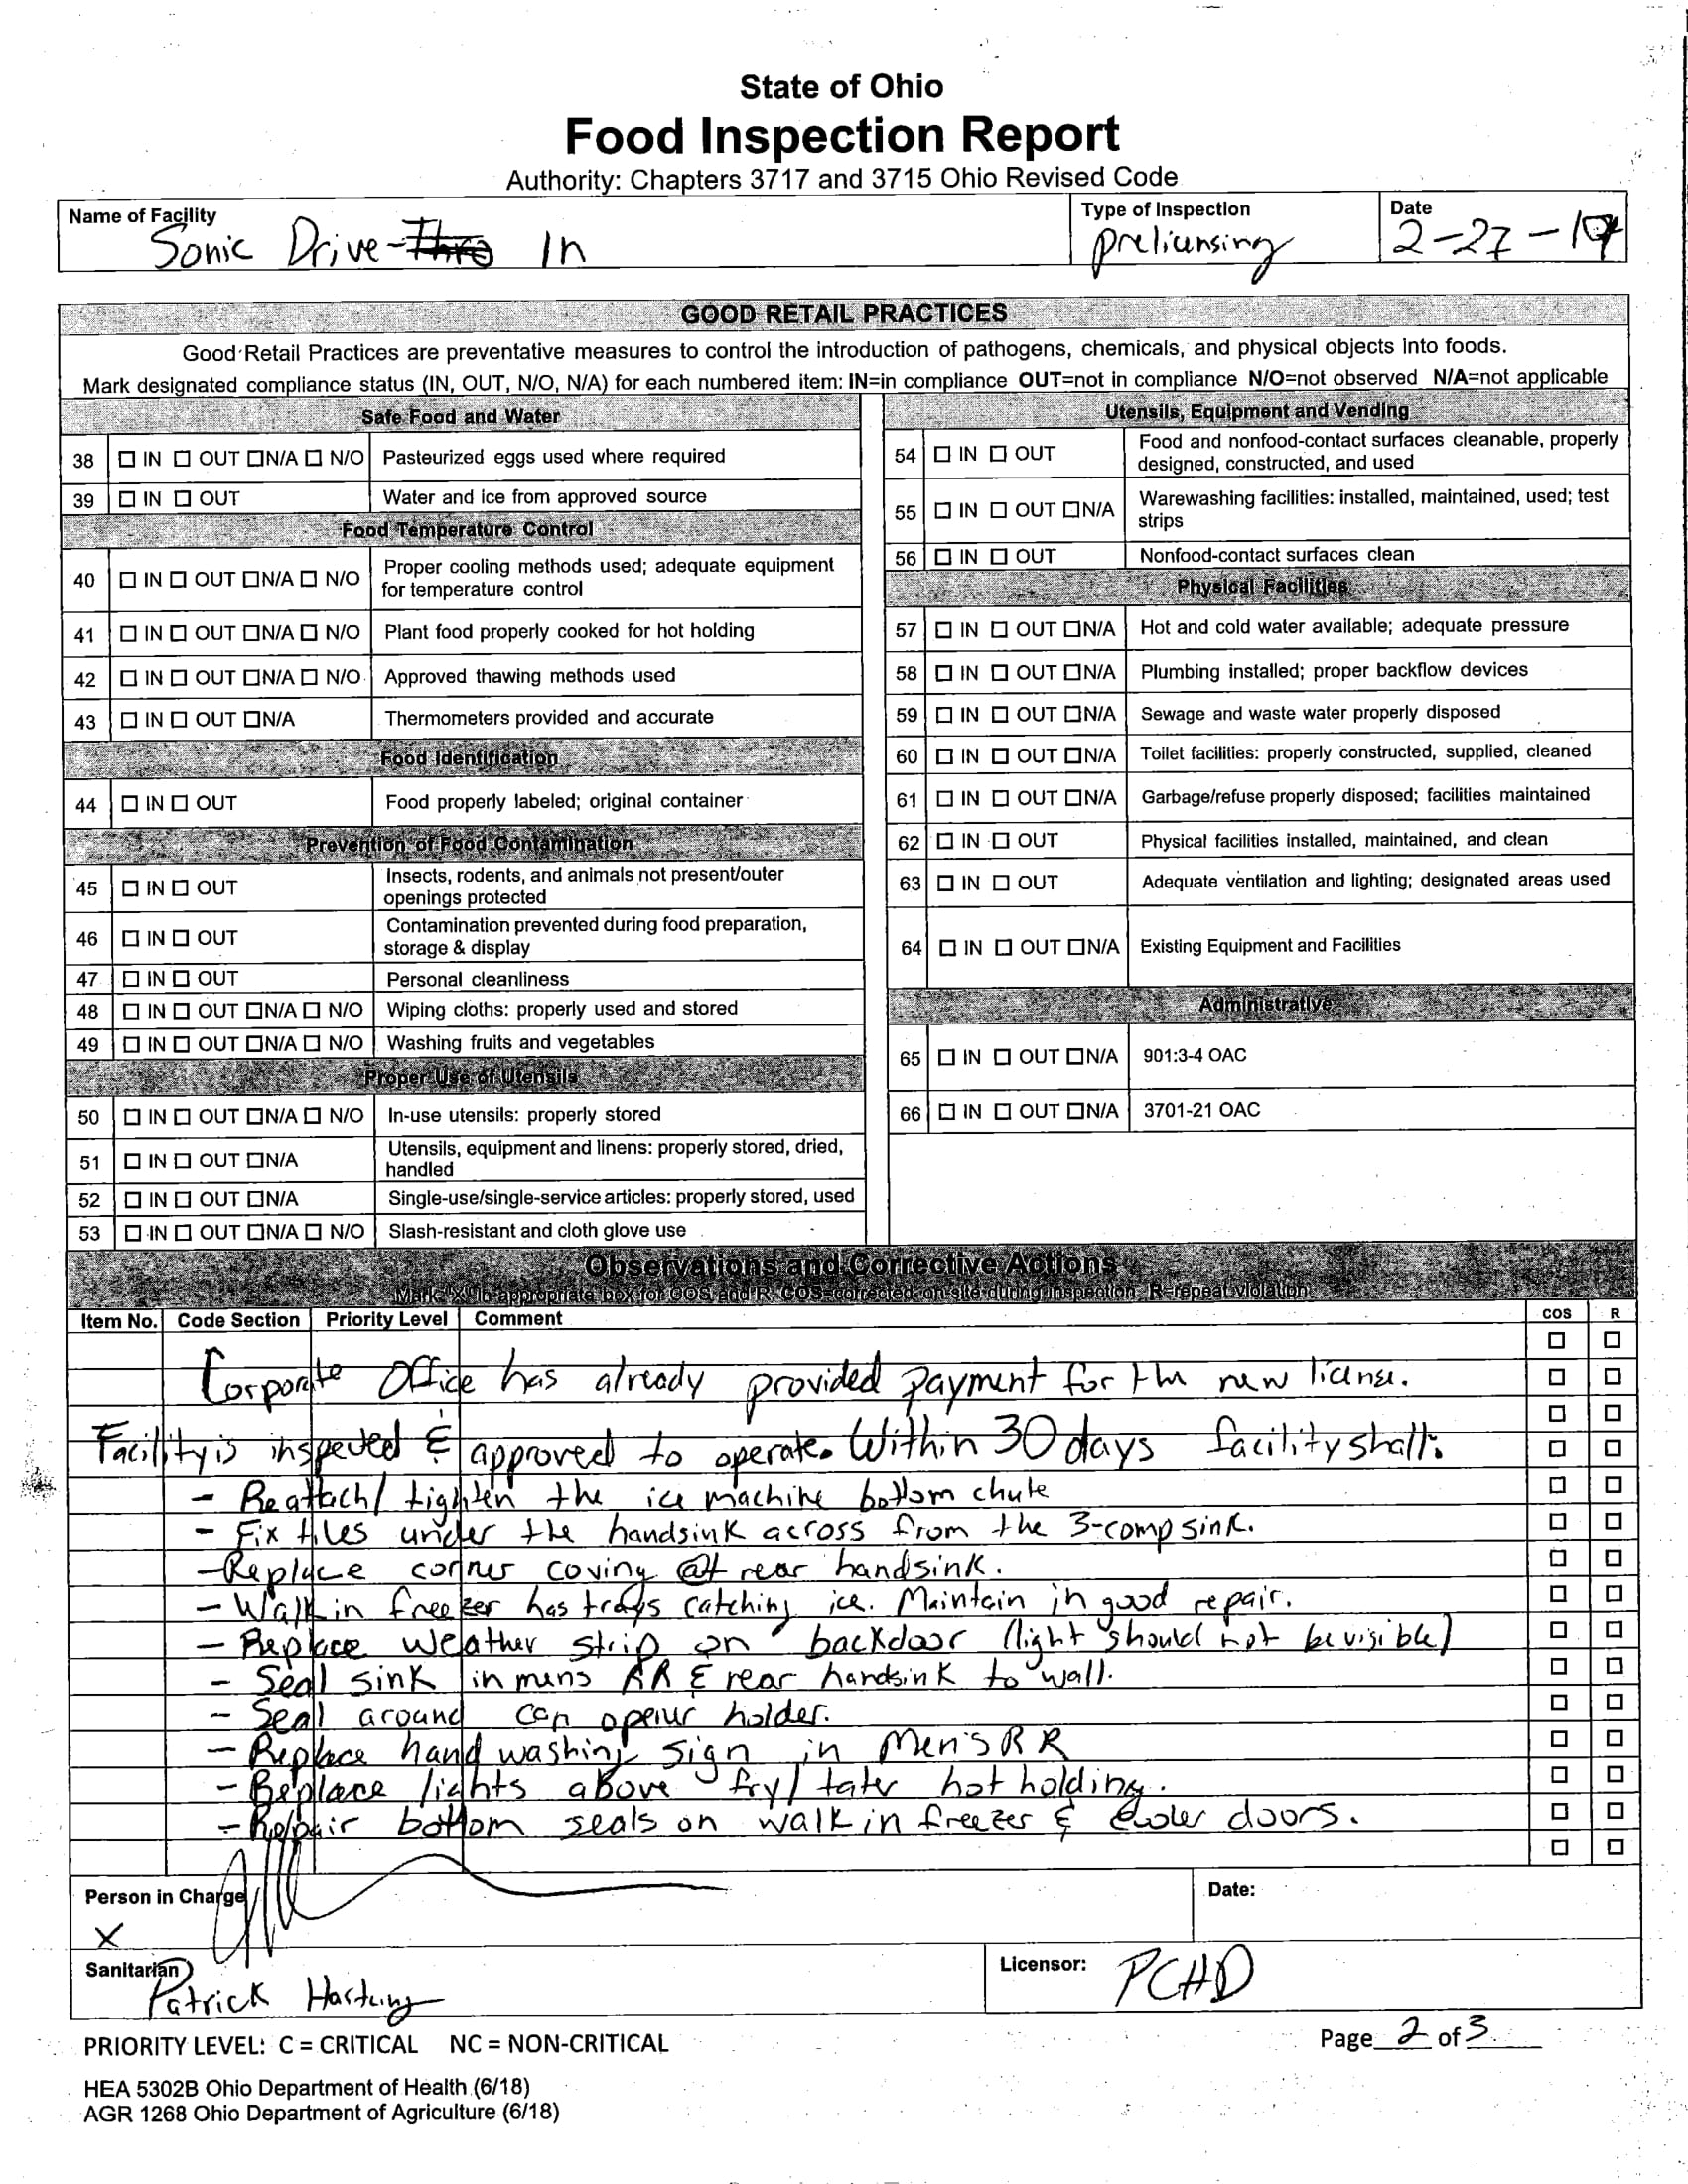 State of Ohio
Food Inspection Report
Authority: Chapters 3717 and 3715 Ohio Revised Code
Name of Facility
Sonic Drive-Thro In
Type of Inspection
prelicensing
Date
2-27-19
GOOD RETAIL PRACTICES
Good Retail Practices are preventative measures to control the introduction of pathogens, chemicals, and physical objects into foods.
Mark designated compliance status (IN, OUT, N/O, N/A) for each numbered item: IN=in compliance OUT=not in compliance N/O=not observed N/A=not applicable
Safe Food and Water
38 ☐ IN ☐ OUT ☐N/A ☐ N/O Pasteurized eggs used where required
39 ☐ IN ☐ OUT Water and ice from approved source
Food Temperature Control
40 ☐ IN ☐ OUT ☐N/A ☐ N/O Proper cooling methods used; adequate equipment
for temperature control
41 ☐ IN ☐ OUT ☐N/A ☐ N/O Plant food properly cooked for hot holding
42 ☐ IN ☐ OUT ☐N/A ☐ N/O Approved thawing methods used
43 ☐ IN ☐ OUT ☐N/A Thermometers provided and accurate
Food Identification
44 ☐ IN ☐ OUT Food properly labeled; original container
Prevention of Food Contamination
45 ☐ IN ☐ OUT Insects, rodents, and animals not present/outer
openings protected
46 ☐ IN ☐ OUT Contamination prevented during food preparation,
storage & display
47 ☐ IN ☐ OUT Personal cleanliness
48 ☐ IN ☐ OUT ☐N/A ☐ N/O Wiping cloths: properly used and stored
49 ☐ IN ☐ OUT ☐N/A ☐ N/O Washing fruits and vegetables
Proper Use of Utensils
50 ☐ IN ☐ OUT ☐N/A ☐ N/O In-use utensils: properly stored
51 ☐ IN ☐ OUT ☐N/A Utensils, equipment and linens: properly stored, dried,
handled
52 ☐ IN ☐ OUT ☐N/A Single-use/single-service articles: properly stored, used
53 ☐ IN ☐ OUT ☐N/A ☐ N/O Slash-resistant and cloth glove use
Utensils, Equipment and Vending
54 ☐ IN ☐ OUT Food and nonfood-contact surfaces cleanable, properly
designed, constructed, and used
55 ☐ IN ☐ OUT ☐N/A Warewashing facilities: installed, maintained, used; test
strips
56 ☐ IN ☐ OUT Nonfood-contact surfaces clean
Physical Facilities
57 ☐ IN ☐ OUT ☐N/A Hot and cold water available; adequate pressure
58 ☐ IN ☐ OUT ☐N/A Plumbing installed; proper backflow devices
59 ☐ IN ☐ OUT ☐N/A Sewage and waste water properly disposed
60 ☐ IN ☐ OUT ☐N/A Toilet facilities: properly constructed, supplied, cleaned
61 ☐ IN ☐ OUT ☐N/A Garbage/refuse properly disposed; facilities maintained
62 ☐ IN ☐ OUT Physical facilities installed, maintained, and clean
63 ☐ IN ☐ OUT Adequate ventilation and lighting; designated areas used
64 ☐ IN ☐ OUT ☐N/A Existing Equipment and Facilities
Administrative
65 ☐ IN ☐ OUT ☐N/A 901:3-4 OAC
66 ☐ IN ☐ OUT ☐N/A 3701-21 OAC
Observations and Corrective Actions
Mark "X" in appropriate box for COS and R: COS=corrected on-site during inspection R=repeat violation
Item No. Code Section Priority Level Comment COS R
Corporate Office has already provided payment for the new license.
Facility is inspected & approved to operate. Within 30 days facility shall:
- Reattach/ tighten the ice machine bottom chute
- Fix tiles under the handsink across from the 3-comp sink.
- Replace corner coving @ rear handsink.
- Walk in freezer has trays catching ice. Maintain in good repair.
- Replace weather strip on backdoor (light should not be visible)
- Seal sink in mens RR & rear handsink to wall.
- Seal around can opener holder.
- Replace hand washing sign in Men's RR
- Replace lights above fry/ tater hot holding.
- Repair bottom seals on walk in freezer & cooler doors.
Person in Charge
X
Date:
Sanitarian
Patrick Hartung
Licensor: PCHD
PRIORITY LEVEL: C = CRITICAL NC = NON-CRITICAL
Page 2 of 3
HEA 5302B Ohio Department of Health (6/18)
AGR 1268 Ohio Department of Agriculture (6/18)